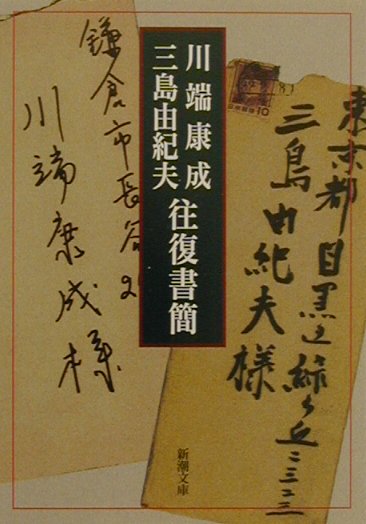 川端康成
三島由紀夫
往復書簡
東京都目黒区緑ヶ丘二三二三
三島由紀夫様
鎌倉市長谷
川端康成様
10
新潮文庫